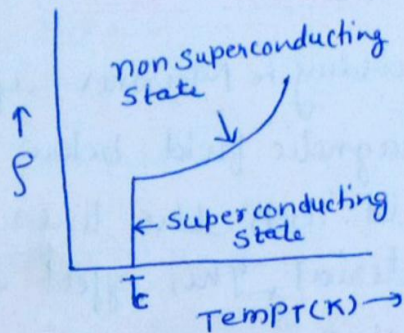 non superconducting
state
↑
ρ
← superconducting
state
Tc
Temp T(K) →